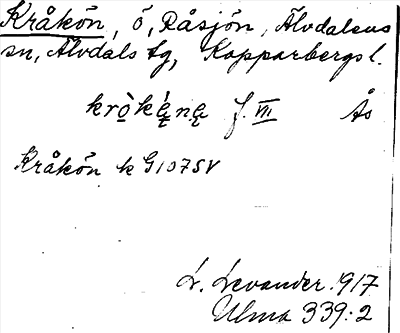 Kråkön, ö, Råsjön, Älvdalens
sn, Älvdals tg, Kopparbergs l.
f. VII Ås
Kråkön k G107SV
L. Levander 1917
Ulma 339:2